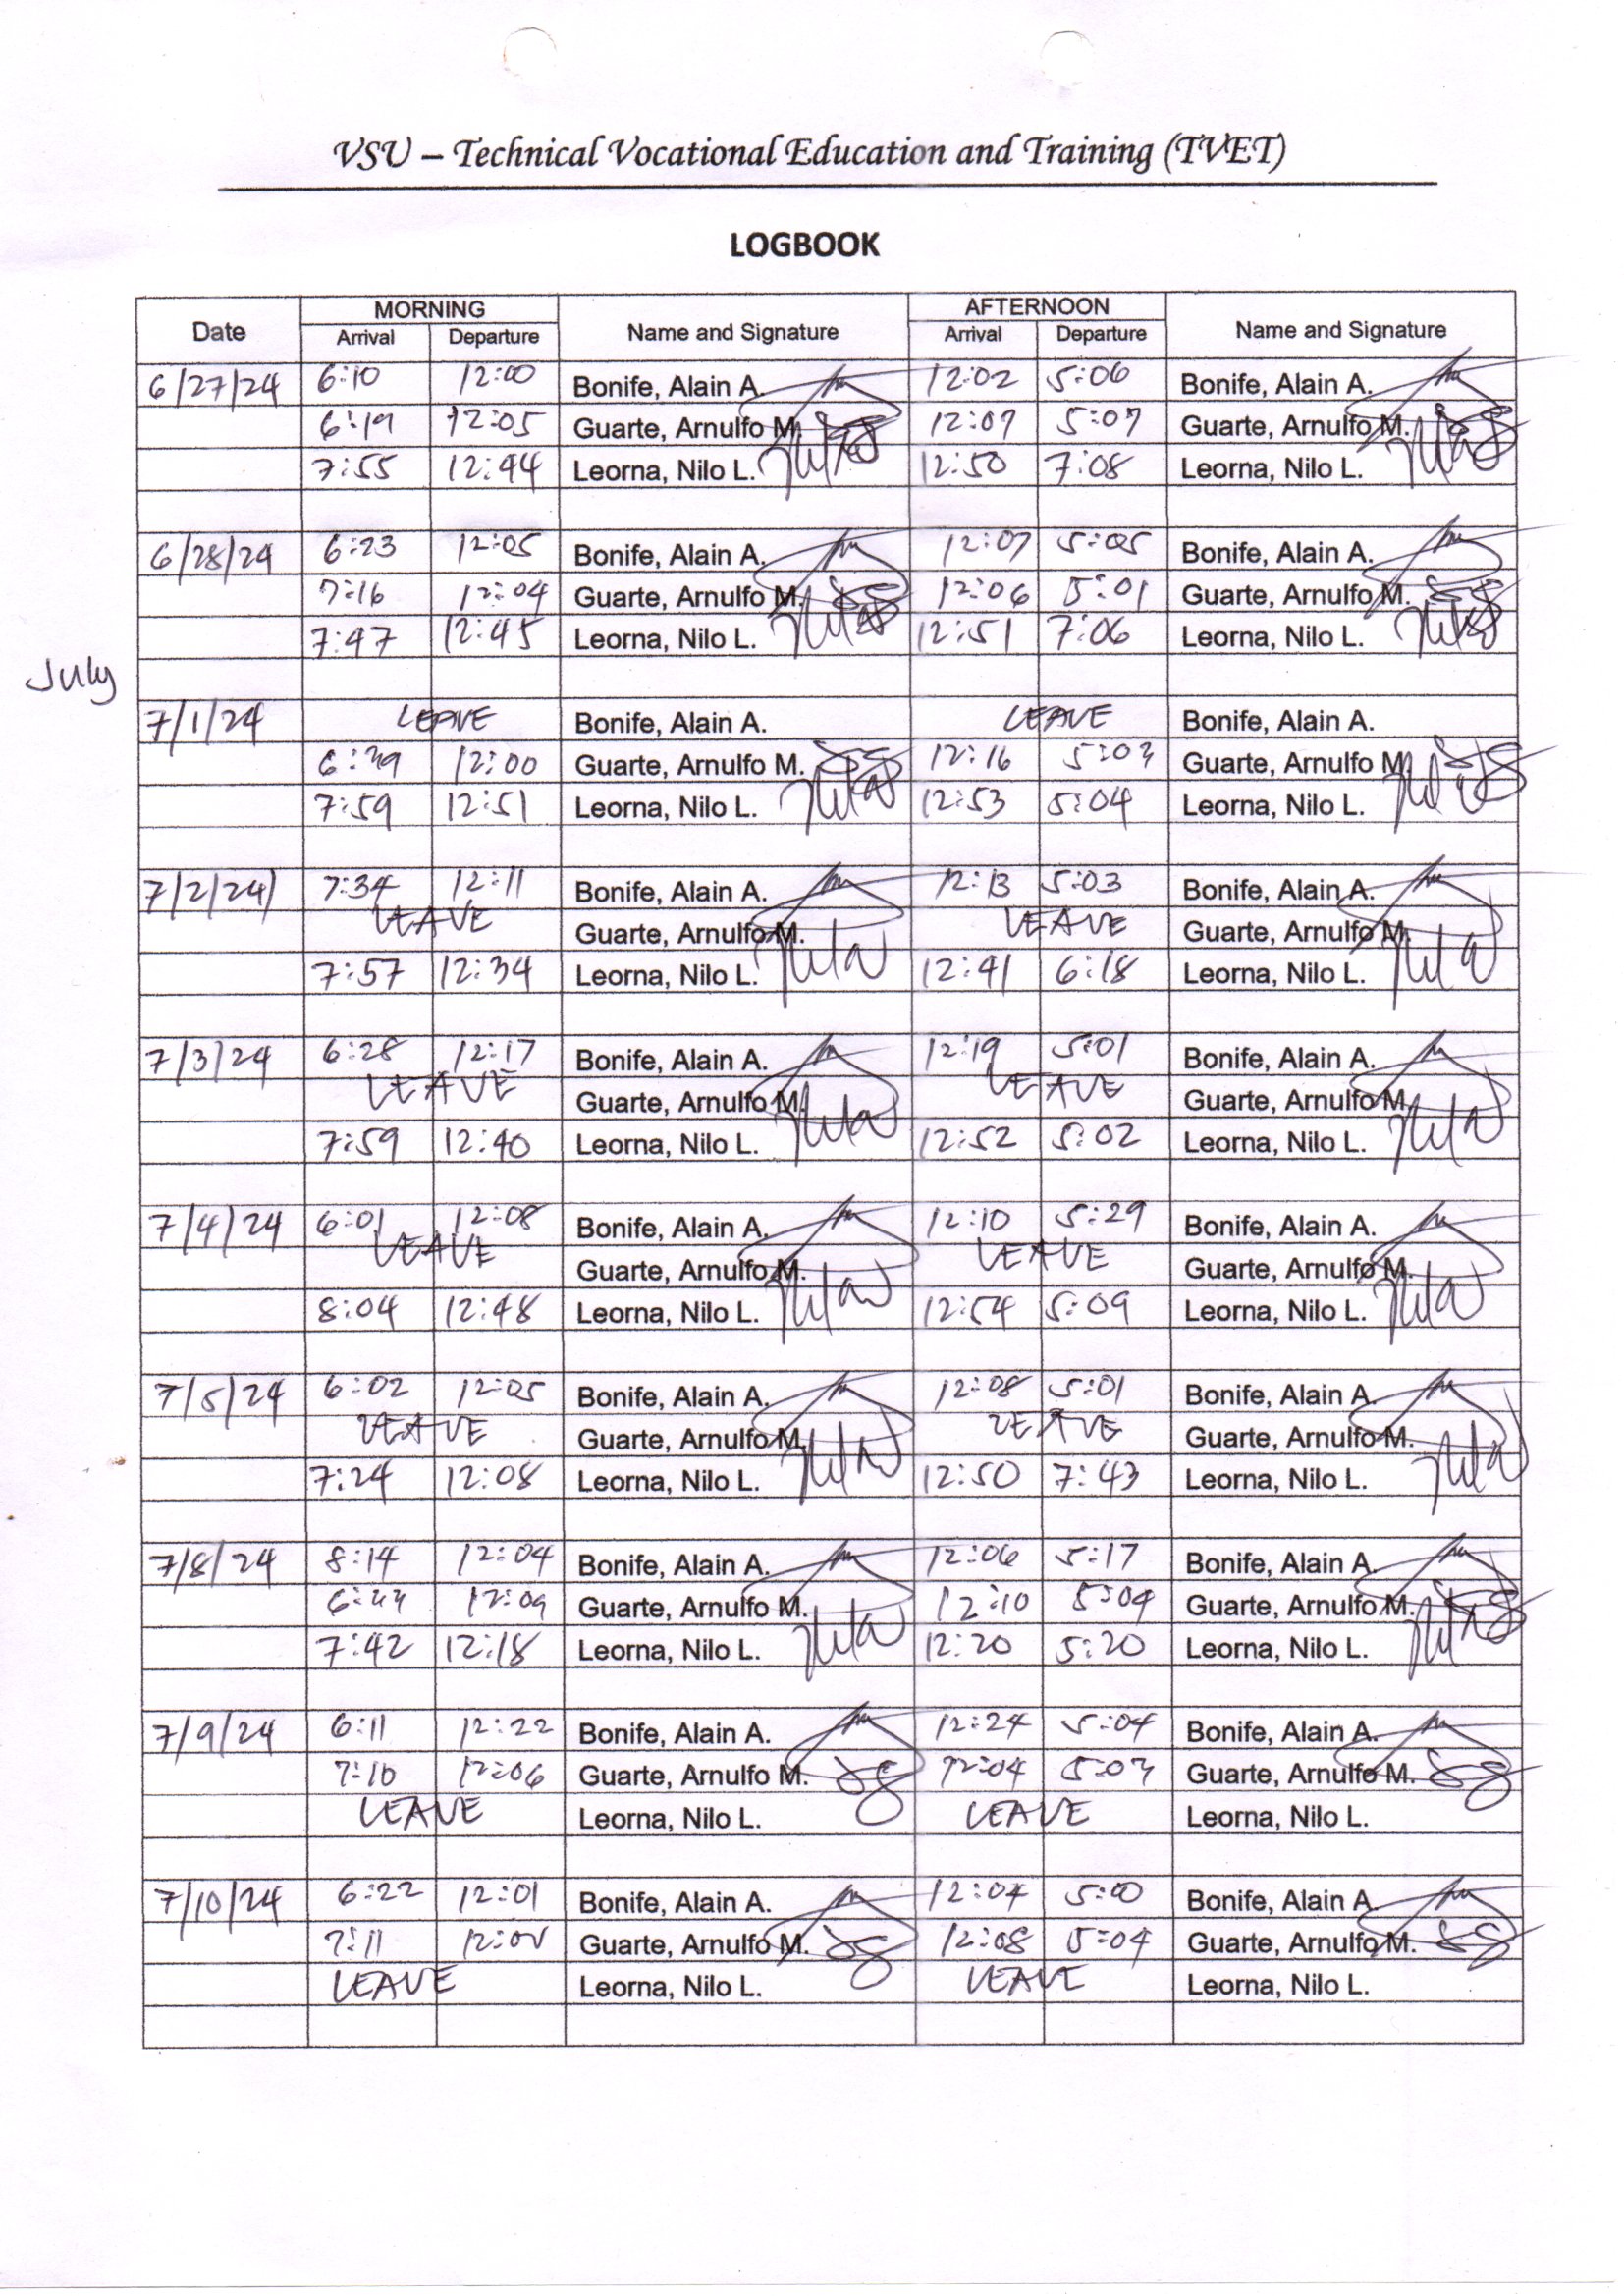 VSU – Technical Vocational Education and Training (TVET)
LOGBOOK
Date MORNING Name and Signature AFTERNOON Name and Signature
Arrival Departure Arrival Departure
6/27/24 6:10 12:00 Bonife, Alain A. 12:02 5:06 Bonife, Alain A.
6:19 12:05 Guarte, Arnulfo M. 12:07 5:07 Guarte, Arnulfo M.
7:55 12:44 Leorna, Nilo L. 12:50 7:08 Leorna, Nilo L.
6/28/24 6:23 12:05 Bonife, Alain A. 12:07 5:05 Bonife, Alain A.
7:16 12:04 Guarte, Arnulfo M. 12:06 5:01 Guarte, Arnulfo M.
7:47 12:45 Leorna, Nilo L. 12:51 7:06 Leorna, Nilo L.
July
7/1/24 LEAVE Bonife, Alain A. LEAVE Bonife, Alain A.
12:00 Guarte, Arnulfo M. 12:16 Guarte, Arnulfo M.
7:59 12:51 Leorna, Nilo L. 12:53 5:04 Leorna, Nilo L.
7/2/24 7:34 12:11 Bonife, Alain A. 12:13 5:03 Bonife, Alain A.
LEAVE Guarte, Arnulfo M. LEAVE Guarte, Arnulfo M.
7:57 12:34 Leorna, Nilo L. 12:41 6:18 Leorna, Nilo L.
7/3/24 6:28 12:17 Bonife, Alain A. 12:19 5:01 Bonife, Alain A.
LEAVE Guarte, Arnulfo M. LEAVE Guarte, Arnulfo M.
7:59 12:40 Leorna, Nilo L. 12:52 5:02 Leorna, Nilo L.
7/4/24 6:01 12:08 Bonife, Alain A. 12:10 5:29 Bonife, Alain A.
LEAVE Guarte, Arnulfo M. LEAVE Guarte, Arnulfo M.
8:04 12:48 Leorna, Nilo L. 12:54 5:09 Leorna, Nilo L.
7/5/24 6:02 12:05 Bonife, Alain A. 12:08 5:01 Bonife, Alain A.
LEAVE Guarte, Arnulfo M. LEAVE Guarte, Arnulfo M.
7:24 12:08 Leorna, Nilo L. 12:50 7:43 Leorna, Nilo L.
7/8/24 8:14 12:04 Bonife, Alain A. 12:06 5:17 Bonife, Alain A.
12:09 Guarte, Arnulfo M. 12:10 5:04 Guarte, Arnulfo M.
7:42 12:18 Leorna, Nilo L. 12:20 5:20 Leorna, Nilo L.
7/9/24 6:11 12:22 Bonife, Alain A. 12:24 5:04 Bonife, Alain A.
7:10 12:06 Guarte, Arnulfo M. 12:04 Guarte, Arnulfo M.
LEAVE Leorna, Nilo L. LEAVE Leorna, Nilo L.
7/10/24 6:22 12:01 Bonife, Alain A. 12:04 5:00 Bonife, Alain A.
7:11 Guarte, Arnulfo M. 12:08 5:04 Guarte, Arnulfo M.
LEAVE Leorna, Nilo L. LEAVE Leorna, Nilo L.